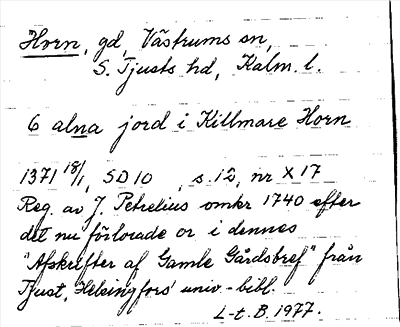 Horn, gd, Västrums sn,
S. Tjusts hd, Kalm. l.
6 alna jord i Killmare Horn
1371 18/1, SD10, s. 12, nr X 17
Reg. av J. Petrelius omkr 1740 efter
det nu förlorade or i dennes
"Afskrifter af Gamle Gårdsbref" från
Tjust, Helsingfors' univ.-bibl.
L-t. B. 1977.